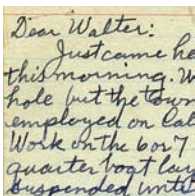 Dear Walter:
Just came he
this morning. W
hole but the tow
employed on Cal
Work on the 6 or 7
quarter boat la
suspended unt